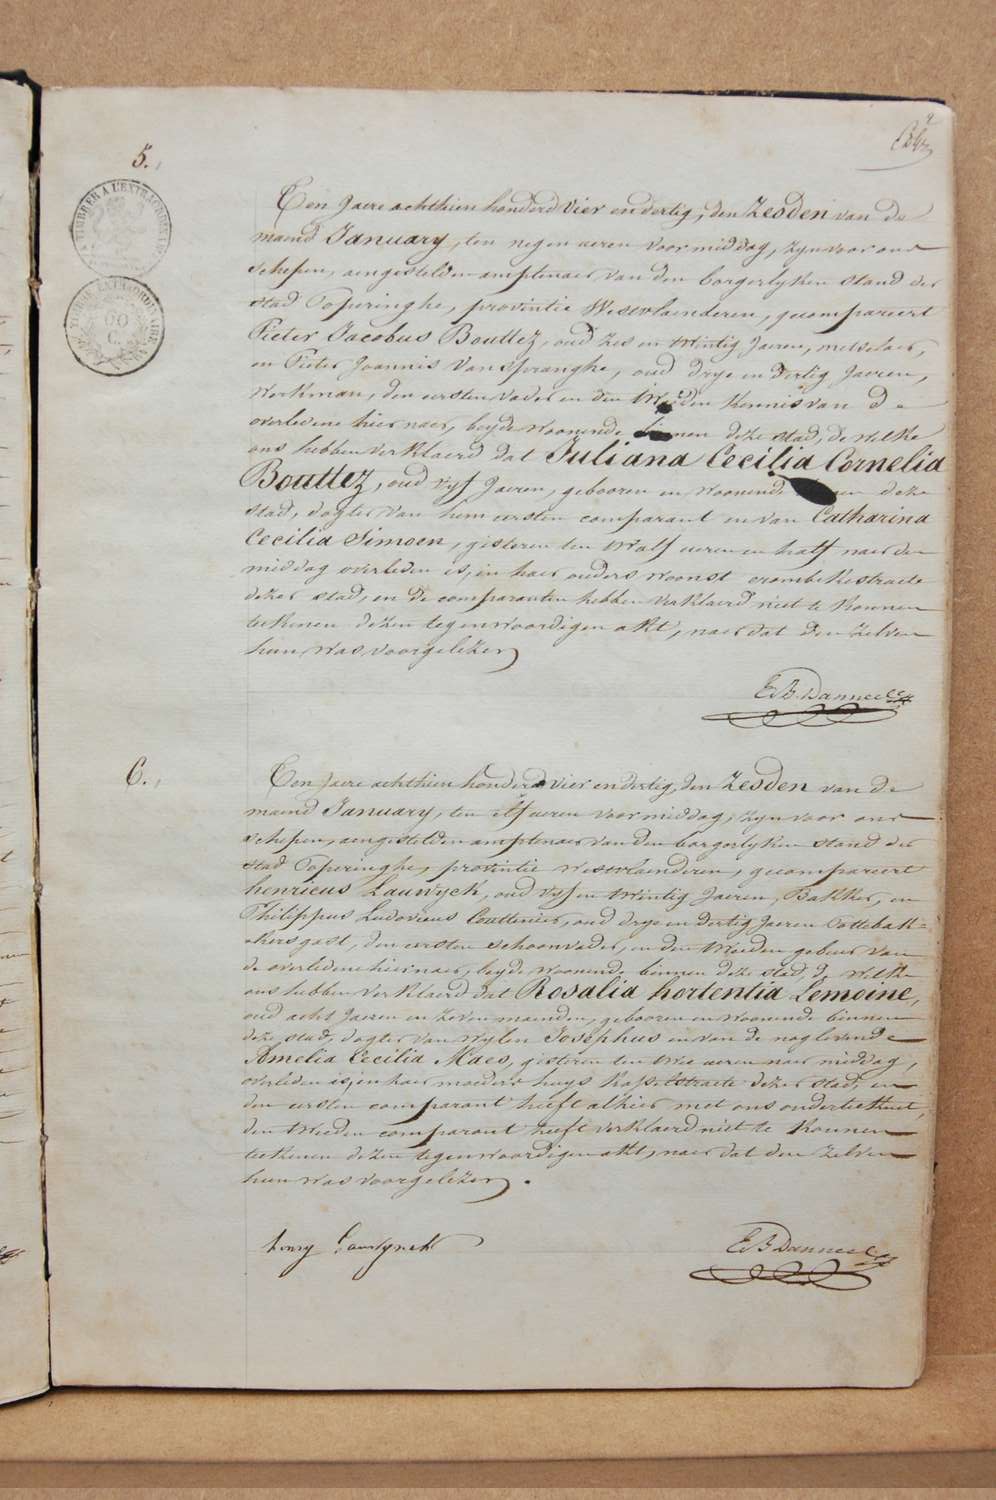 5.
TIMBRER A L'EXTRAORDINAIRE
TIMBRE EXTRAORDINAIRE
60
C
Een jaere achthien honderd vier en dertig, den Zesden van de
maend January, ten negen ueren voormiddag, zyn voor ons
schepen, aengestelden amptenaer van den borgerlyken stand der
stad Poperinghe, provintie Westvlaenderen, gecompareert
Pieter Jacobus Bouttez, oud zes en twintig Jaeren, metselaer,
en Pieter Joannis Van Spranghe, oud drye en dertig Jaeren,
Werkman, den eersten vader en den tweeden kennis van de
overledene hier naer, beyde woonende binnen deze stad, de welke
ons hebben verklaerd dat Juliana Cecilia Cornelia
Bouttez, oud vyf Jaeren, gebooren en woonende deze
stad, dogter van hem eersten comparant en van Catharina
Cecilia Simoen, gisteren ten twalf ueren en half naer den
middag overleden is, in haer ouders woonst crombekestraete
dezer stad, en de comparanten hebben verklaerd niet te konnen
teekenen dezen tegenwoordigen akt, naer dat den zelven
hun was voorgelezen
E B Danneel
6.
Een jaere achthien honderd vier en dertig, den Zesden van de
maend January, ten elf ueren voormiddag, zyn voor ons
schepen, aengestelden amptenaer van den borgerlyken stand der
stad Poperinghe, provintie Westvlaenderen, gecompareert
henricus Lauwyck, oud vyf en twintig Jaeren, Bakker, en
Philippus Ludovicus Couttenier, oud drye en dertig Jaeren Pottebak-
kersgast, den eersten schoonvader, en den tweeden gebeur van
de overledene hier naer, beyde woonende binnen deze stad, de welke
ons hebben verklaerd dat Rosalia hortentia Lemoine,
oud acht Jaeren en zeven maenden, gebooren en woonende binnen
deze stad, dogter van wylen Josephus en van de naglevende
Amelia Cecilia Maes, gisteren ten twee ueren naer middag,
overleden is, in haer moeders huys Kasselstraete dezer stad, en
den eersten comparant heeft alhier met ons onderteekent,
den tweeden comparant heeft verklaerd niet te konnen
teekenen dezen tegenwoordigen akt, naer dat den zelven
hun was voorgelezen.
henry Lauwynck
E B Danneel